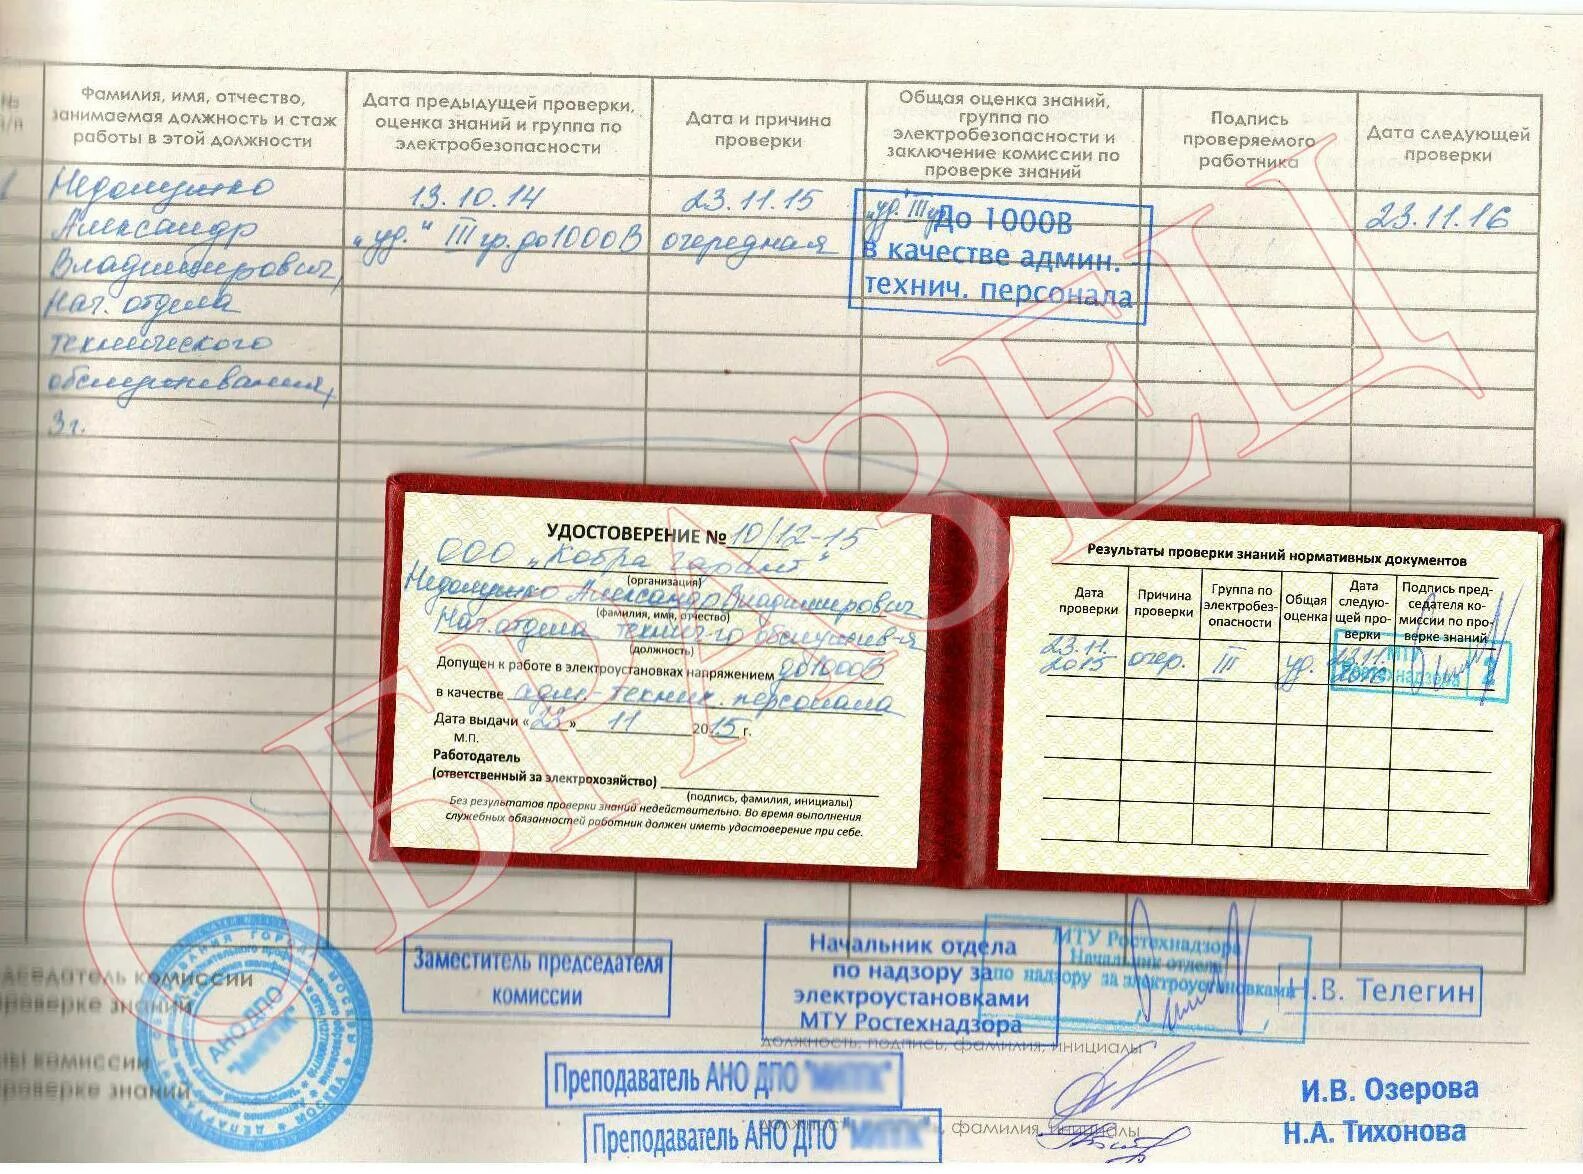 №
п/п
Фамилия, имя, отчество,
занимаемая должность и стаж
работы в этой должности
Дата предыдущей проверки,
оценка знаний и группа по
электробезопасности
Дата и причина
проверки
Общая оценка знаний,
группа по
электробезопасности и
заключение комиссии по
проверке знаний
Подпись
проверяемого
работника
Дата следующей
проверки
1
Недомушко
Александр
Владимирович,
Нач. отдела
технического
обслуживания,
3г.
13.10.14
"уд." III гр. до 1000В
23.11.15
очередная
"уд." III гр
До 1000В
в качестве админ. -
технич. персонала
23.11.16
ОБРАЗЕЦ
УДОСТОВЕРЕНИЕ № 10/12-15
ООО "Кобра Гарант"
(организация)
Недомушко Александр Владимирович
(фамилия, имя, отчество)
Нач. отдела технич-го обслужив-я
(должность)
Допущен к работе в электроустановках напряжением до 1000В
в качестве адм.-технич. персонала
Дата выдачи «23» 11 2015 г.
М.П.
Работодатель
(ответственный за электрохозяйство)
(подпись, фамилия, инициалы)
Без результатов проверки знаний недействительно. Во время выполнения
служебных обязанностей работник должен иметь удостоверение при себе.
Результаты проверки знаний нормативных документов
Дата
проверки
Причина
проверки
Группа по
электробез-
опасности
Общая
оценка
Дата
следую-
щей про-
верки
Подпись пред-
седателя ко-
миссии по про-
верке знаний
23.11.
2015
очер.
III
уд.
МТУ
Ростехнадзора
2
седатель комиссии
роверке знаний
ны комиссии
роверке знаний
АНО ДПО
Заместитель председателя
комиссии
Начальник отдела
по надзору за
электроустановками
МТУ Ростехнадзора
МТУ Ростехнадзора
Начальник отдела
по надзору за электроустановками
Н.В. Телегин
должность, подпись, фамилия, инициалы
Преподаватель АНО ДПО
И.В. Озерова
Преподаватель АНО ДПО
фамилия, инициалы
Н.А. Тихонова